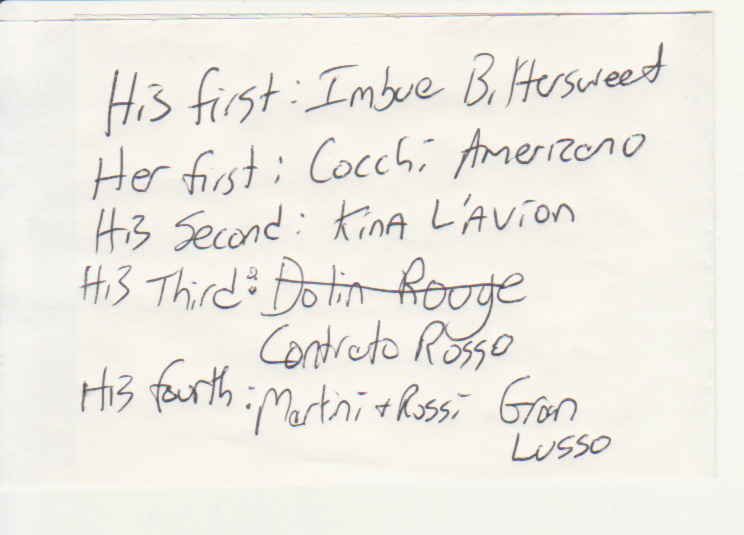 His first: Imbue Bittersweet
Her first: Cocchi Americano
His Second: Kina L'Avion
His Third: Dolin Rouge
Contrato Rosso
His fourth: Martini + Rossi Gran
Lusso